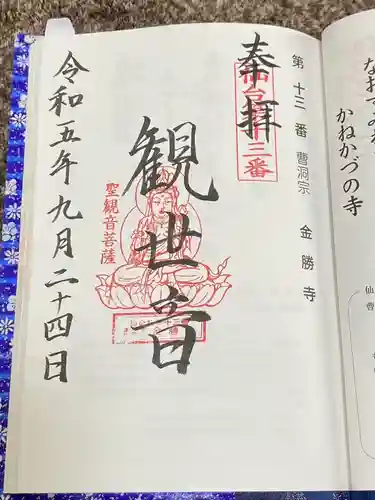 なおすみれ
かねかづの寺
第十三番 曹洞宗 金勝寺
奉拝
仙台三十三番
観世音
聖観音菩薩
令和五年九月二十四日
仙
曹